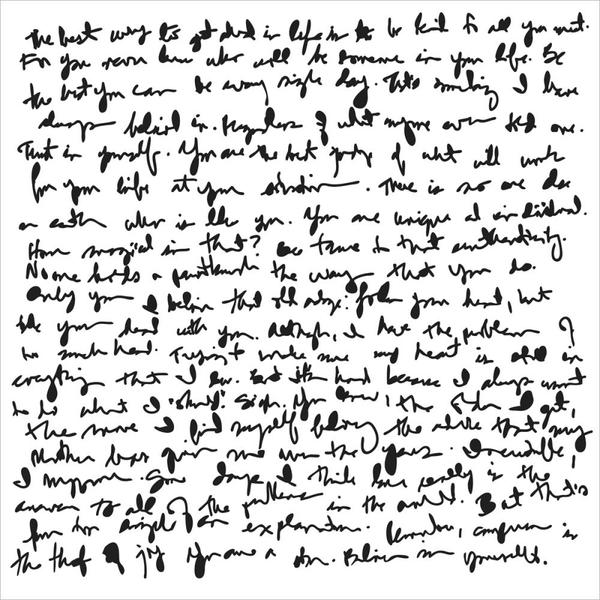 The best way to get ahead in life is to be kind to all you meet.
For you never know who will be someone in your life. Be
the best you can be every single day. This is something I have
always believed in. Regardless of what anyone ever told me.
Trust in yourself. You are the best judge of what will work
for you life at your situation. There is no one else
on earth who is like you. You are unique and individual.
How magical is that? Be true to that authenticity.
No one holds a to the way that you do.
Only you. I believe that old adage: follow your head, but
with you. Although, I have the problem of
too much head. Trying to make sure my heart is also in
everything that I do. But it's hard because I always want
to do what I "should". Sigh. You know, the older I get,
the more I find myself following the advice that my
Mother has given me over the years. Incredible,
I suppose. Some days I think love really is the
answer to all of the problems in the world. But that's
far too simple of an explanation. comparison is
the thief of joy. You are a star. Believe in yourself.